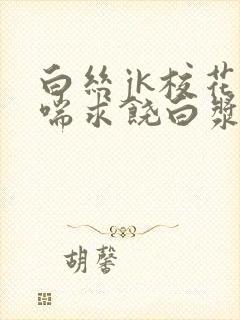 白丝jk校花
喘求饶白浆
胡馨